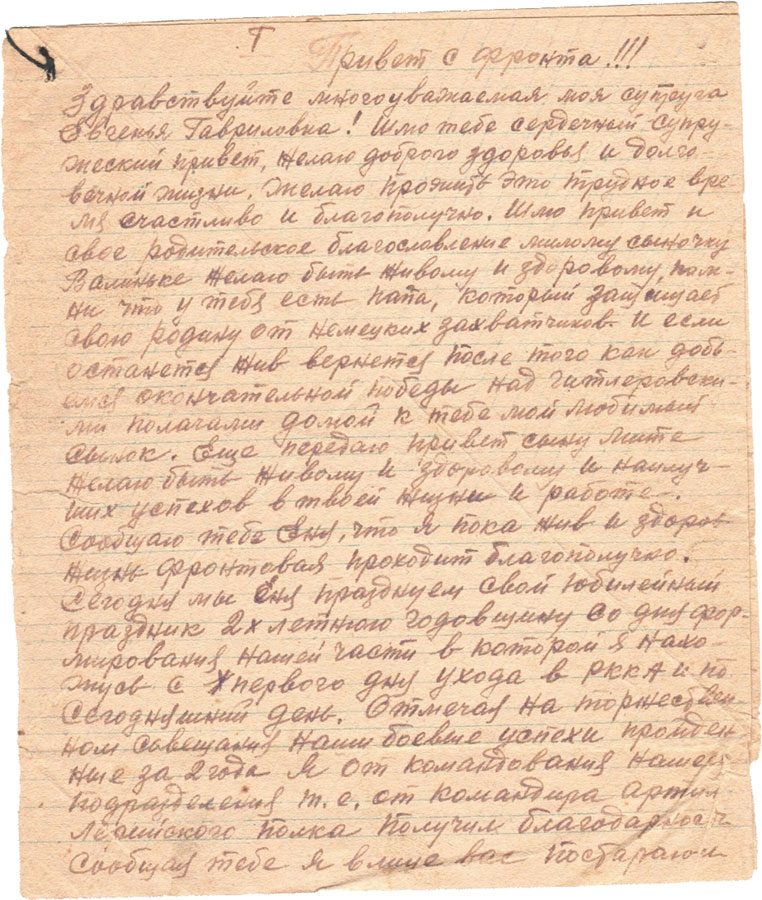 I
Привет с фронта!!!
Здравствуйте многоуважаемая моя супруга
Евгенья Гавриловка! Шлю тебе сердечный супру-
жеский привет, желаю доброго здоровья и долго
вечной жизни. Желаю прожить это трудное вре
мя счастливо и благополучно. Шлю привет и
свое родительское благославление милому сыночку
Валиньке желаю быть живому и здоровому, пом-
ни что у тебя есть папа, который защищает
свою родину от немецких захватчиков. И если
останется жив вернется после того как добь-
емся окончательной победы над гитлеровски-
ми полачами домой к тебе мой любимый
сынок. Еще передаю привет сыну Мите
желаю быть живому и здоровому и наилуч-
ших успехов в твоей жизни и работе.
Сообщаю тебе Еня, что я пока жив и здоров
жизнь фронтовая проходит благополучно.
Сегодня мы Еня празднуем свой юбилейный
праздник 2х летнюю годовщину со дня фор-
мирования нашей части в которой я нахо-
жусь с первого дня ухода в РККА и по
сегодняшний день. Отмечая на торжествен-
ном совещания наши боевые успехи пройден
ные за 2 года я от командования нашей
подразделения т.е. от командира артил
лерийского полка получил благодарност
сообщая тебе я в лице вас постараюсь